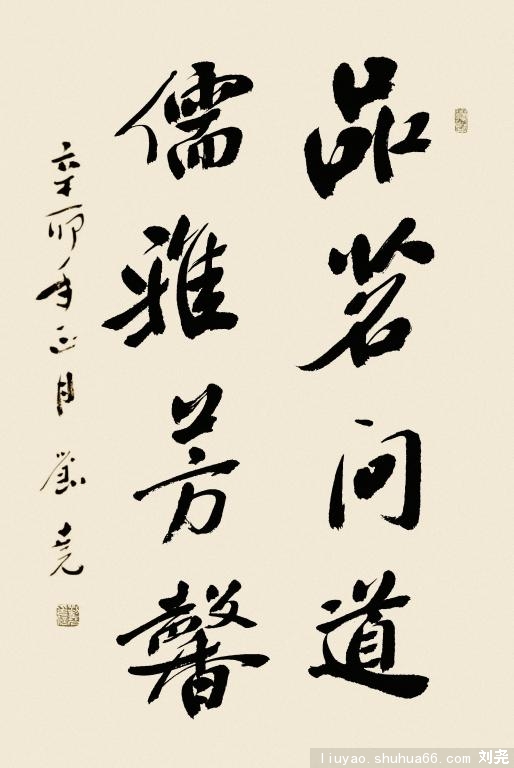 品茗问道
儒雅芳馨
辛卯年正月 刘尧
liuyao.shuhua66.com 刘尧